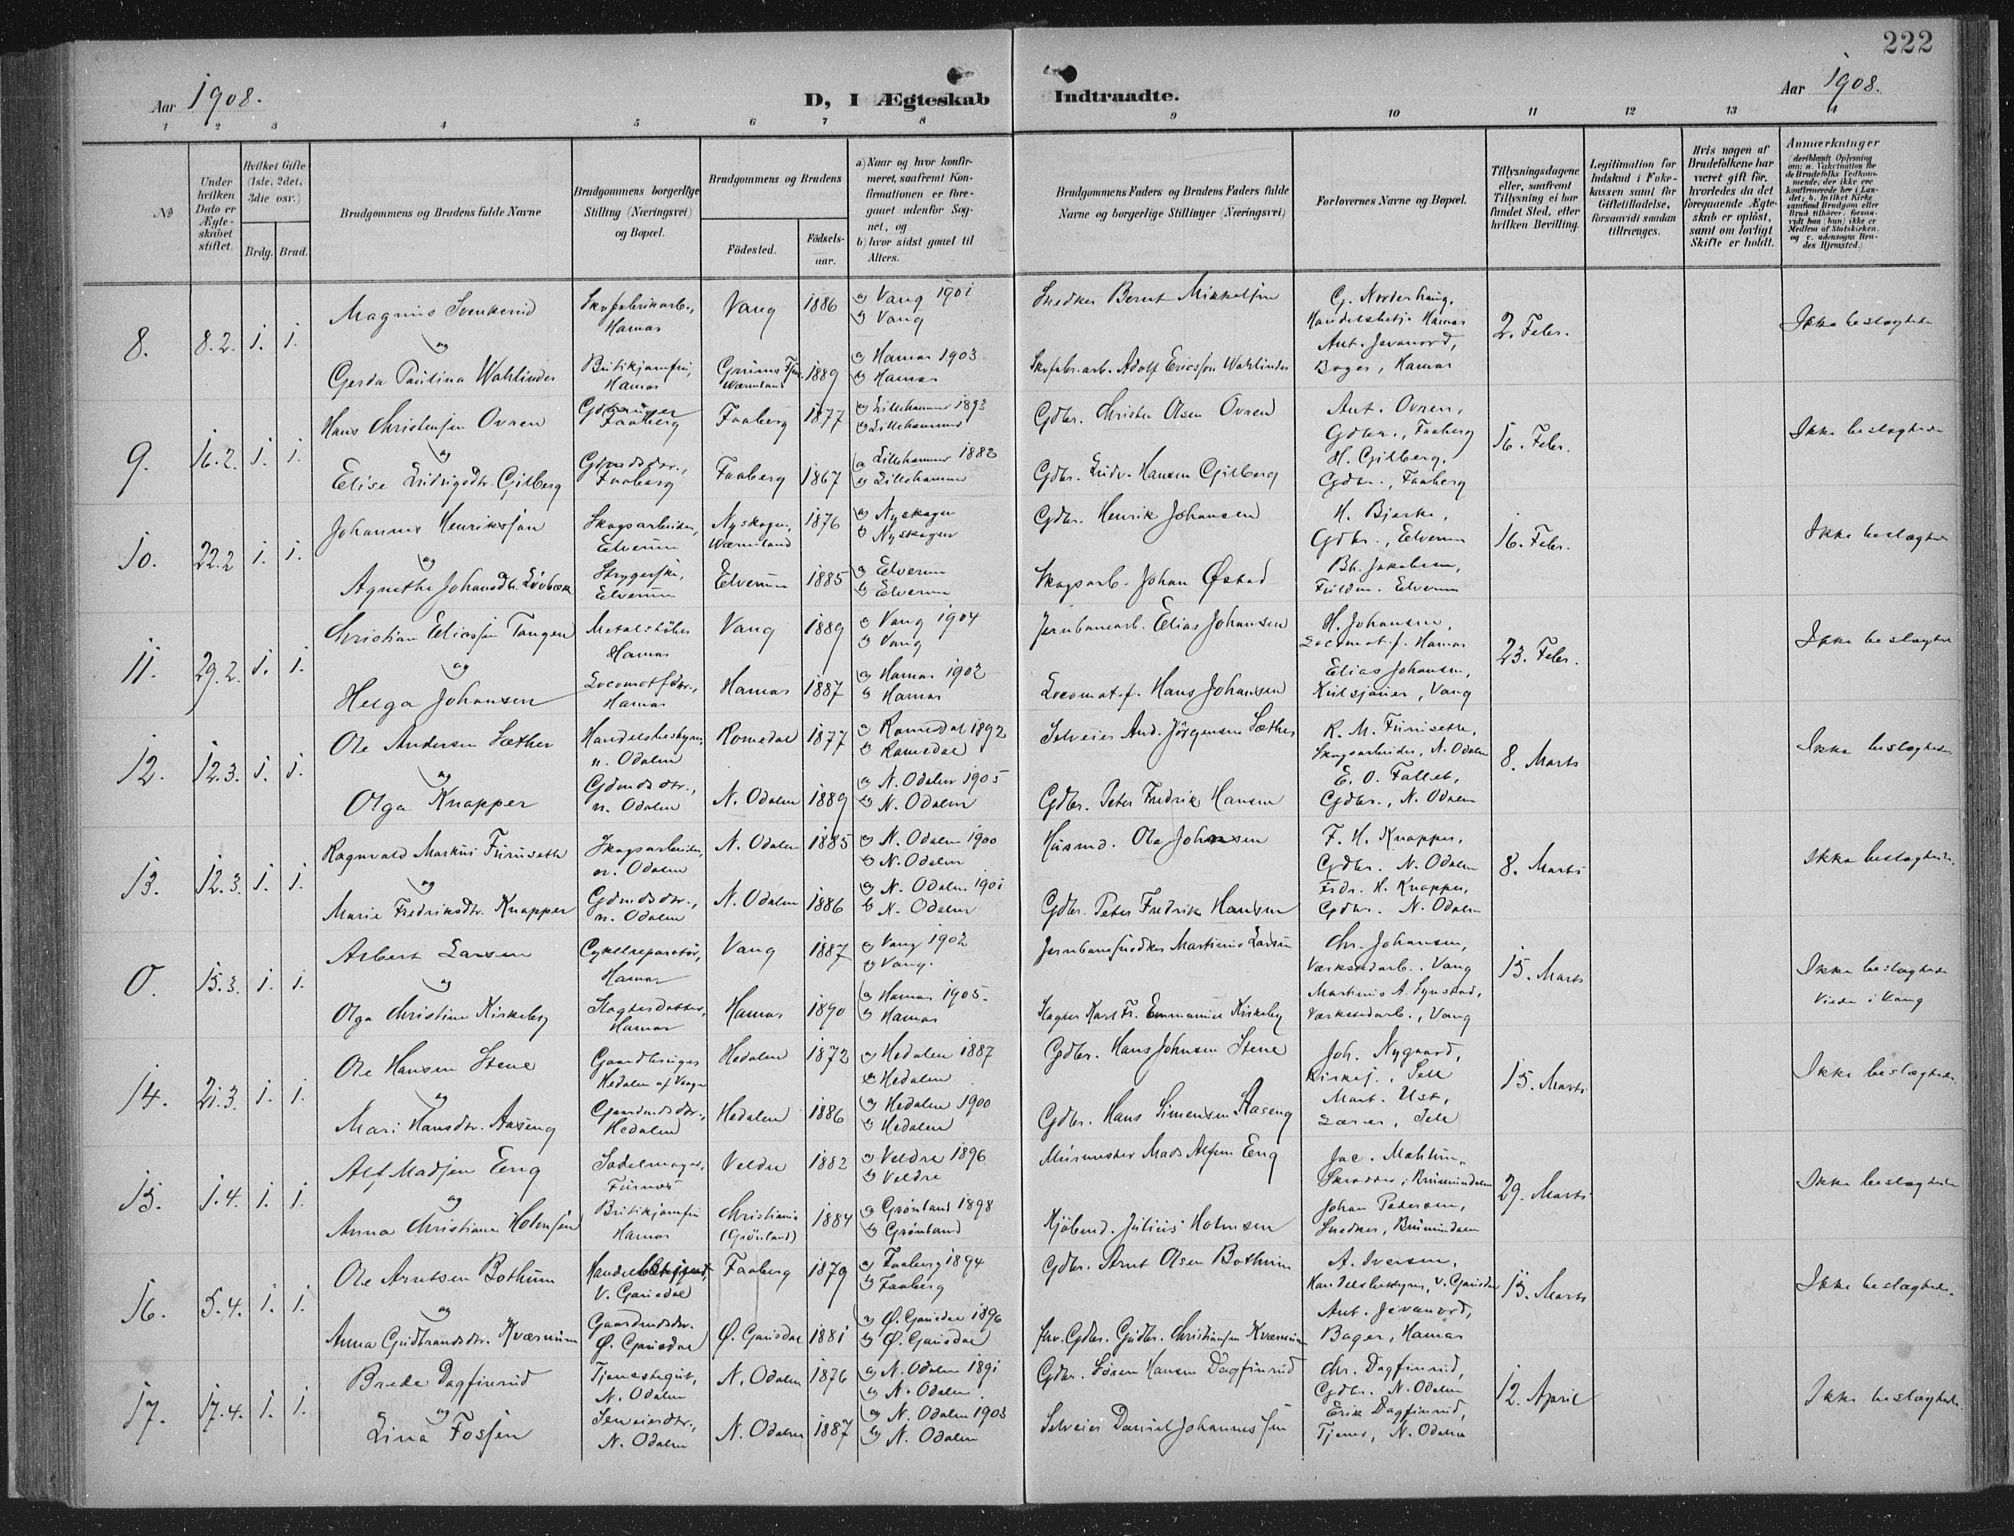 222
Aar 1908. D, I Ægteskab Indtraadte. Aar 1908.
1 2 3 4 5 6 7 8 9 10 11 12 13 14
No
Under hvilken Dato er Ægteskabet stiftet.
Hvilket Gifte (1ste, 2det, 3die osv.)
Brdg. Brud.
Brudgommens og Brudens fulde Navne
Brudgommens borgerlige Stilling (Næringsvei) og Bopæl.
Brudgommens og Brudens
Födested.
Födselsaar.
a) Naar og hvor konfirmeret, saafremt Konfirmationen er foregaaet udenfor Sognet, og
b) hvor sidst gaaet til Alters.
Brudgommens Faders og Brudens Faders fulde Navne og borgerlige Stillinger (Næringsvei)
Forlovernes Navne og Bopæl.
Tillysningsdagene eller, saafremt Tillysning ei har fundet Sted, efter hvilken Bevilling.
Legitimation for Indskud i Enkekassen samt for Giftetilladelse, forsaavidt saadan tiltrænges.
Hvis nogen af Brudefolkene har været gift för, hvorledes da det foregaaende Ægteskab er oplöst, samt om lovligt Skifte er holdt.
Anmærkninger
8. 8.2. 1. 1. Magnus Svenkerud Skofabrikarb., Hamar Vang 1886 a) Vang 1901 b) Vang Snedker Bernt Mikkelsen G. Norderhaug, Handelsbetj. Hamar 2. Febr. Ikke beslægtede
og
Gerda Paulina Wahlinder Butikjomfru, Hamar Wærmland 1889 a) Hamar 1903 b) Hamar Skofabr.arb. Adolf Ericsson Wahlinder Ant. Jevanord, Bager, Hamar
9. 16.2. 1. 1. Hans Christensen Ovren Gdbruger Faaberg Faaberg 1877 a) Lillehammer 1893 b) Lillehammer Gdbr. Christen Olsen Ovren Ant. Ovren, Gdbr., Faaberg 16. Febr. Ikke beslægtede
og
Elise Ludvigsdtr. Gilberg Gdmdsdtr., Faaberg Faaberg 1867 a) Lillehammer 1882 b) Lillehammer Gdbr. Ludv. Hansen Gilberg H. Gilberg, Gdbr., Faaberg
10. 22.2 1. 1. Johannes Henriksson Skogsarbeider, Elverum Nyskogen, Wærmland 1876 a) Nyskogen b) Nyskogen Gdbr. Henrik Johansen H. Bjerke, Gdbr., Elverum 16. Febr. Ikke beslægtede
og
Agnethe Johansdtr. Løvbæk Strygerske, Elverum Elverum 1885 a) Elverum b) Elverum Skogsarb. Johan Østad Bh. Jakobsen, Elverum
11. 29.2. 1. 1. Christian Eliassen Tangen Metalstøber Hamar Vang 1889 a) Vang 1904 b) Vang Jernbanearb. Elias Johansen H. Johansen, Locomot.f. Hamar 23. Febr. Ikke beslægtede
og
Helga Johansen Locomotfdtr., Hamar Hamar 1887 a) Hamar 1902 b) Hamar Locomot.f. Hans Johansen Elias Johansen, Vang
12. 12.3. 1. 1. Ole Andersen Sæther Handelsbestyrer, n. Odalen Romedal 1877 a) Romedal 1892 b) Romedal Selveier And. Jørgensen Sæther R. M. Furuseth, Skogsarbeider, N. Odalen 8. Marts Ikke beslægtede
og
Olga Knapper Gdmdsdtr., n. Odalen N. Odalen 1889 a) N. Odalen 1905 b) N. Odalen Gdbr. Peter Fredrik Hansen E. O. Fallet, Gdbr., N. Odalen
13. 12.3. 1. 1. Ragnvald Markus Furuseth Skogsarbeider, n. Odalen N. Odalen 1885 a) N. Odalen 1900 b) N. Odalen Husmd. Ole Johansen F. H. Knapper, Gdbr. N. Odalen 8. Marts Ikke beslægtede
og
Marie Fredriksdtr. Knapper Gdmdsdtr., n. Odalen N. Odalen 1886 a) N. Odalen 1901 b) N. Odalen Gdbr. Peter Fredrik Hansen Frdr. H. Knapper, Gdbr. N. Odalen
0. 15.3. 1. 1. Albert Larsen Cykelreparatør, Hamar Vang 1887 a) Vang 1902 b) Vang. Jernbanesnedker Martinus Larsen Chr. Johansen, Værkstedarb., Vang 15. Marts Ikke beslægtede Viede i Vang
og
Olga Christine Kirkeby Slagterdatter, Hamar Hamar 1890 a) Hamar 1905. b) Hamar Slagter Karl Fr. Emmanuel Kirkeby Martinus A. Lynstad, Værkstedarb., Vang
14. 21.3. 1. 1. Ole Hansen Stene Gaardbruger Hedalen af Vaage Hedalen 1872 a) Hedalen 1887 b) Hedalen Gdbr. Hans Johnsen Stene Joh. Nygaard, Kirkesj., Sell 15. Marts Ikke beslægtede.
og
Mari Hansdtr. Aaseng Gaardmdsdtr., Hedalen Hedalen 1886 a) Hedalen 1900 b) Hedalen Gdbr. Hans Simensen Aaseng Mart. Ust, Lærer, Sell
15. 1.4. 1. 1. Alf Madsen Eng Sadelmager, Furnæs Veldre 1882 a) Veldre 1896 b) Veldre Murmester Mads Alfsen Eng Jac. Mehlum, Skrædder, Brumunddalen 29. Marts Ikke beslægtede
og
Anna Christiane Holmsen Butikjomfru Hamar Christiania (Grønland) 1884 a) Grønland 1898 b) Grønland Kjøbmd. Julius Holmsen Johan Pedersen, Snedker, Brumunddalen
16. 5.4. 1. 1. Ole Arntsen Bothum V. Gausdal Faaberg 1879 a) Faaberg 1894 b) Faaberg Gdbr. Arnt Olsen Bothum A. Iversen, Handelsbestyrer, V. Gausdal 15. Marts Ikke beslægtede.
og
Anna Gudbrandsdtr. Kværnum Gaardmdsdtr. Ø. Gausdal Ø. Gausdal 1881 a) Ø. Gausdal 1896 b) Ø. Gausdal fhv. Gdbr. Gudbr. Christiansen Kværnum Ant. Jevanord, Bager, Hamar
17. 17.4. 1. 1. Brede Dagfinrud Tjenestegut, N. Odalen N. Odalen 1876 a) N. Odalen 1891 b) N. Odalen. Gdbr. Søren Hansen Dagfinrud Chr. Dagfinrud, Gdbr. N. Odalen 12. April Ikke beslægtede.
og
Lina Fossen Selveierdtr., N. Odalen N. Odalen 1887 a) N. Odalen 1903 b) N. Odalen Selveier Daniel Johannessen Erik Dagfinrud, Tjener, N. Odalen